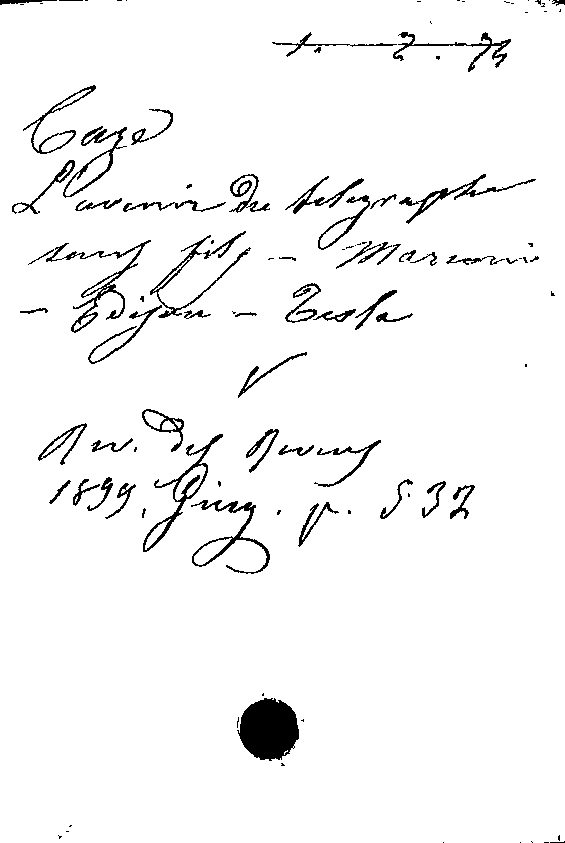 1. 2. 74
Caze
L'avenir du telegraphe
sans fils – Marconi
– Edison – Tesla
Rev. des Revues
1899, p. 532